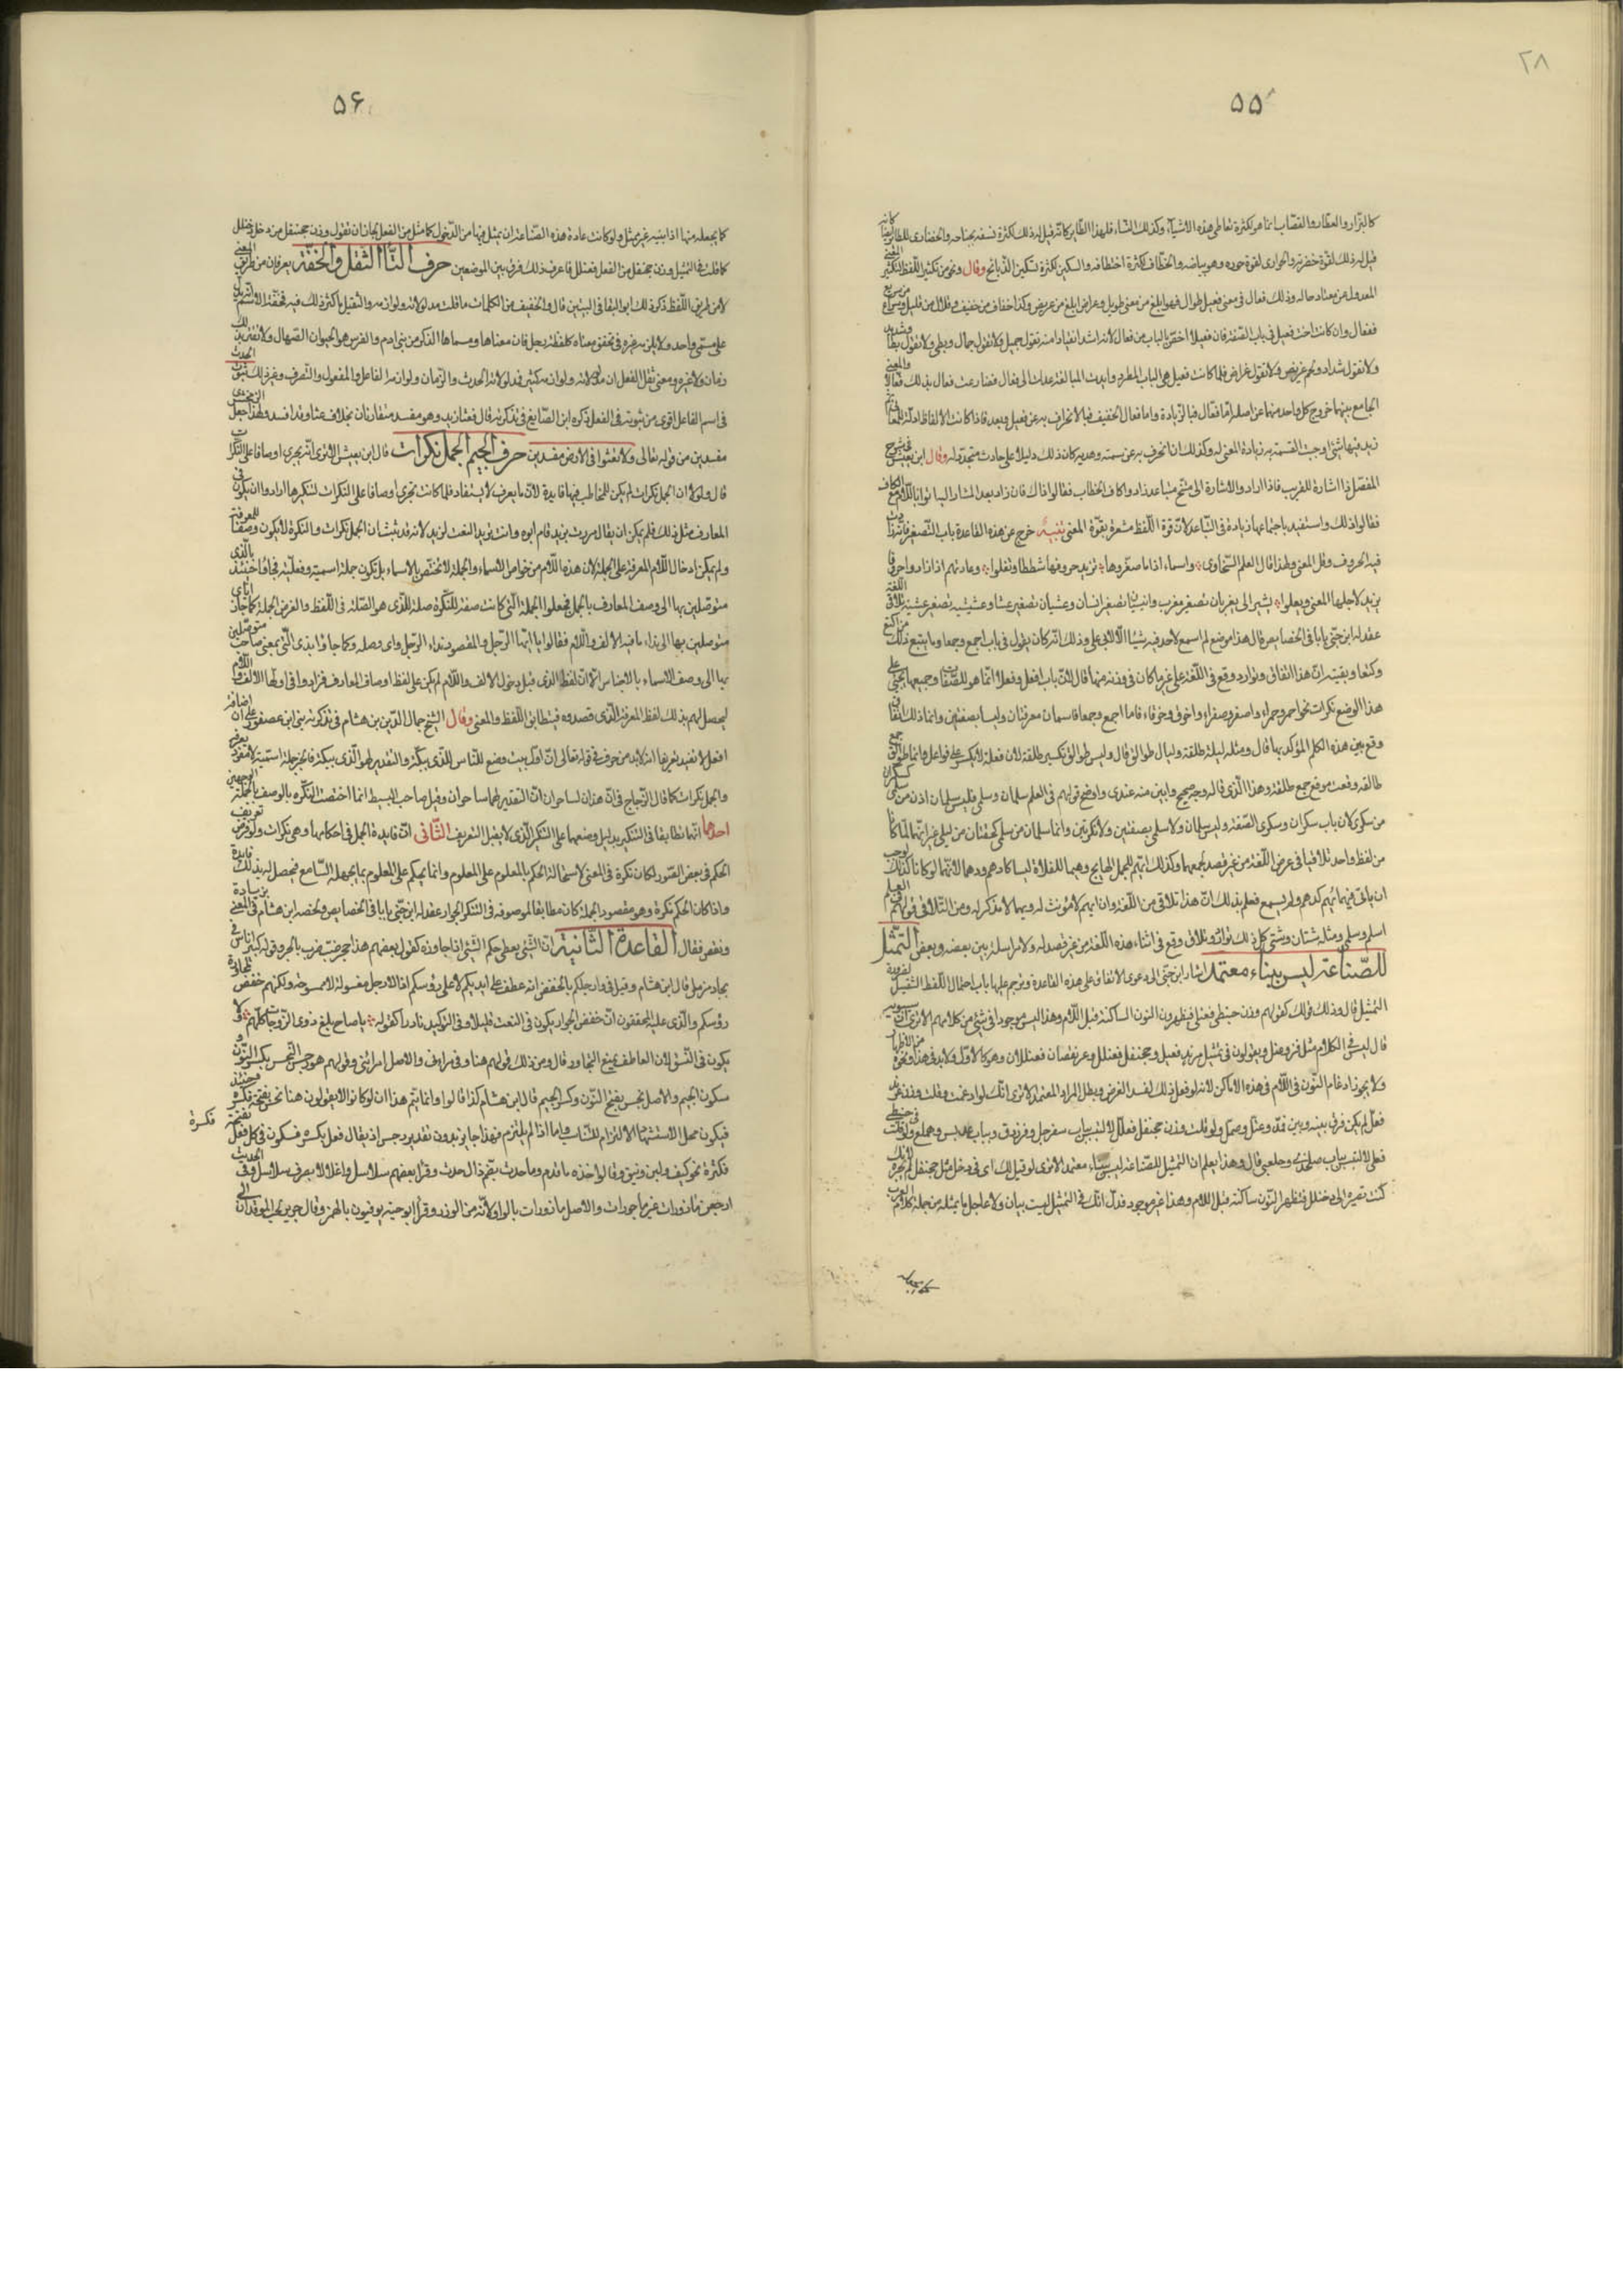 ٢٨
۵۵
كالبزّار والعطّار والقصّاب انما هو لكثرة تعاطى هذه الاشياء وكذلك النسّاف لهذا الطاير كانّه قيل له ذلك لكثرة نسفه بجناحه والخضارى للطاير ايضا كانه
قيل له ذلك لقوّة خضرته والحوارى لقوة حوره وهو بياضه والخطّاف لكثرة اختطافه والسكين لكثرة تسكين الذبايح وقال ونحو من تكثير اللفظ لتكثير المعنى
المعدول عن معتاد حاله وذلك فعال فى معنى فعيل طوال فهو ابلغ من معنى طويل وعراض ابلغ من عريض وكذا خفاف من خفيف وقلال من قليل وسراع من سريع
ففعال وان كانت اخت فعيل فى باب الصفة فان فعيلا اخصّ بالباب من فعال لانه اشد انقيادا منه تقول جميل ولا تقول جمال وبطئ ولا تقول بطاء وشديد
ولا تقول شداد ولحم غريض ولا تقول غراض فلما كانت فعيل هى الباب المطرد واريدت المبالغة عدلت الى فعال فضارعت فعال بذلك فعّالا والمعنى
الجامع بينهما خروج كل واحد منهما عن اصله اما فعّال فبالزيادة واما فعال الخفيف فبالانحراف به عن فعيل وبعد فاذا كانت الالفاظ ادلة المعانى ثم
زيد فيها شئ اوجبت القسمة به زيادة المعنى له وكذلك ان انحرف به عن سمته وهديه كان ذلك دليلا على حادث متجدد له وقال ابن يعيش فى شرح
المفصل ذا اشارة للقريب فاذا ارادوا الاشارة الى متنح متباعد زادوا كاف الخطاب فقالوا ذاك فان زاد بعد المشار اليه اتوا باللام مع الكاف
فقالوا ذلك واستفيد باجتماعهما زيادة فى التباعد لان قوة اللفظ مشعرة بقوة المعنى تنبيه خرج عن هذه القاعدة باب التصغير فانه زادت
فيه الحروف وقل المعنى ولهذا قال العلم السّخاوى واسماء اذا ما صغّروها تزيد حروفها شططا وتغلوا وعادتهم اذا زادوا حروفا
يزيد لاجلها المعنى ويعلوا يشير الى مغيربان تصغير مغرب وانيسيان تصغير انسان وعشيان تصغير عشاء وعشيشية تصغير عشية تلاقى اللغة
عقد له ابن جنّى بابا فى الخصايص قال هذا موضع لم اسمع لاحد فيه شيئا الا لابى على وذلك انه كان يقول فى باب اجمع وجمعا وما يتبع ذلك من اكتع
وكتعا وبقيته ان هذا اتفاق وتوارد وقع فى اللغة على غير ما كان فى وزنه منها قال لان باب افعل وفعلا انما هو للصفات وجميعها يجئ على
هذا الوضع نكرات نحو احمر وحمراء واصفر وصفراء واخرق وخرقاء فاما اجمع وجمعا فاسمان معرفتان وليسا بصفتين وانما ذلك اتفاق
وقع بين هذه الكلم المؤكد بها قال ومثله ليلة طلقة وليال طوالق قال وليس طوالق تكسير طلقة لان فعلة لا تكسر على فواعل وانما طوالق جمع
طالقة وقعت موقع جمع طلقة وهذا الذى قاله وجه صحيح وابين منه عندى واوضح قولهم فى العلم سلمان وسلمى فليس سلمان اذن من سلمى كسكران
من سكرى لان باب سكران وسكرى الصفة وليس سلمان ولا سلمى بصفتين ولا نكرتين وانما سلمان من سلمى كقحطان من ليلى غير انهما لما كانا
من لفظ واحد تلاقيا فى عرض اللغة من غير قصد لجمعهما وكذلك ايهم للجمل الهايج ويهما للفلاة ليسا كادهم ودهما لانهما لو كانا كذلك لوجب
ان ياتى فيهما يهم كدهم ولم يسمع فعلم بذلك ان هذا تلاقى من اللغة وان ايهم لا مؤنث له ويهما لا مذكر له ومن التلاقى قولهم فى العلم
اسلم وسلمى ومثله شتان وشتى كل ذلك توارد وتلاق وقع فى اثناء هذه اللغة من غير قصد له ولا مراسلة بين بعضه وبعض التمثيل
للصّناعة ليس ببناء معتمد اشار ابن جنّى الى دعوى الاتفاق على هذه القاعدة وترجم عليها باب احتمال اللفظ الثقيل لضرورة
التمثيل قال وذلك قولك كقولهم وزن حبنطى فعنلى فيظهرون النون الساكنة قبل اللام وهذا ليس موجودا فى شئ من كلامهم الا ترى ان سيبويه
قال ليس فى الكلام مثل قنر وعنل ويقولون فى تمثيل عرند فعنل وجحنفل فعنلل وعرنقصان فعنللان وهو كالاول ولا بد فى هذا ونحوه من الاظهار
ولا يجوز ادغام النون فى اللام فى هذه الاماكن لانه لو فعل ذلك لفسد الغرض وبطل المراد المعتمد الا ترى انك لو ادغمت وقلت وزن عرند
فعلّ لم يكن فرق بينه وبين قمدّ وعتلّ وصملّ ولو قلت وزن جحنفل فعلّل لالتبس بباب سفرجل وفرزدق وبباب عدبس وهملع ولو قلت فى حبنطى
فعلى لالتبس بباب صلخدى وجلعبى قال وهذا يعلم ان التمثيل للصّناعة ليس ببناء معتمد الا ترى لو قيل لك ابن فى دخل مثل جحنفل لم يجز لانك
كنت تصير الى دخنلل فتظهر النون ساكنة قبل اللام وهذا غير موجود فدل انك فى التمثيل لست ببان ولا جاعل ما تمثله من جملة كلام العرب
۵۶
كما يجعله منها اذا بنيته غير ممثل ولو كانت عادة هذه الصناعة ان يمثل فيها من الدخول كما مثل من الفعل لجاز ان تقول وزن جحنفل من دخل دخنلل
كما قلت فى التمثيل وزن جحنفل من الفعل فعنلل فاعرف ذلك فرقا بين الموضعين حرف الثّا الثقل والخفّة يعرفان من طريق المعنى
لا من طريق اللفظ ذكر ذلك ابو البقا فى التبيين قال والخفيف من الكلمات ما قلت مدلولاته ولوازمه والثقيل ما كثر ذلك فيه فخفّة الاسم انه يدل
على مسمى واحد ولا يلزمه غيره فى تحقق معناه كلفظة رجل فان معناها ومسماها الذكر من بنى ادم والفرس هو الحيوان الصهال ولا تقترن بذلك
زمان ولا غيره ومعنى ثقل الفعل ان مدلولاته ولوازمه كثيرة فمدلولاته الحدث والزمان ولوازمه الفاعل والمفعول والتصرف وغير ذلك ثبوت الحدث
فى اسم الفاعل اقوى من ثبوته فى الفعل ذكره ابن الصّايغ فى تذكرته قال فعثا زيد وهو مفسد متقاربان بخلاف عثا وقد افسد ولهذا جعل الزمخشرى
مفسدين من قوله تعالى ولا تعثوا فى الارض مفسدين حرف الجيم الجمل نكرات قال ابن يعيش الا ترى انه يجرى اوصافا على النكرات
قال ولولا ان الجمل نكرات لم يكن للمخاطب فيها فايدة لان ما يعرف لا يستفاد فلما كانت تجرى اوصافا على النكرات لتنكرها ارادوا ان يكون فى
المعارف مثل ذلك فلم يمكن ان يقال مررت بزيد قام ابوه وانت تريد النعت لزيد لانه قد ثبت ان الجمل نكرات والنكرة لا يكون وصفا للمعرفة
ولم يمكن ادخال اللام المعرفة على الجملة لان هذه اللام من خواص الاسماء والجملة لا تختص بالاسماء بل تكون جملة اسمية وفعلية فجاؤا حينئذ بالذى
متوصلين بها الى وصف المعارف بالجمل فجعلوا الجملة التى كانت صفة للنكرة صلة للذى هو الصلة فى اللفظ والغرض الجملة كما جاؤا باى
متوصلين بها الى نداء ما فيه الالف واللام فقالوا يا ايها الرجل والمقصود نداء الرجل واى وصله وكما جاؤا بذى التى بمعنى صاحب متوصلين
بها الى وصف الاسماء بالاجناس الا ان لفظ الذى قبل دخول الالف واللام لم يكن على لفظ اوصاف المعارف فزادوا فى اولها الالف واللام
ليحصل لهم بذلك لفظ المعرفة الذى قصدوه فيتطابق اللفظ والمعنى وقال الشيخ جمال الدين بن هشام فى تذكرته بنى ابن عصفور على ان اضافة
افعل لا تفيد تعريفا انه لا بد من حذف فى قوله تعالى ان اول بيت وضع للناس للذى ببكة والتقدير لهو الذى ببكة فالخبر جملة اسمية لا مفرد معرفة
والجمل نكرات كما قال الزجاج فى ان هذان لساحران ان التقدير لهما ساحران وقيل صاحب البسيط انما اختصت النكرة بالوصف بالجملة لوجهين
احدهما انهما تطابقا فى التنكير بدليل وضعها على التنكير الذى لا يقبل التعريف الثّانى ان فايدة الجمل فى احكامها وهى نكرات ولو فرض تعريف
الحكم فى بعض الصور لكان نكرة فى المعنى لاستحالة الحكم بالمعلوم على المعلوم وانما يحكم على المعلوم بما يجهله السامع فيحصل له بذلك فايدة
واذا كان الحكم نكرة وهو مقصود الجملة كان مطابقا لموصوفه فى التنكير الجوار عقد له ابن جنّى بابا فى الخصايص ولخصه ابن هشام فى المعنى بزيادة
ونقص فقال القاعدة الثّانية ان الشئ يعطى حكم الشئ اذا جاوره كقول بعضهم هذا جحر ضب خرب بالجر وقوله كبير اناس فى
بجاد مزمل قال ابن هشام وقيل فى وارجلكم بالخفض انه عطف على ايديكم لا على رؤسكم اذ الارجل مغسولة لا ممسوحة ولكنهم خفض لمجاورة
رؤسكم والذى عليه المحققون ان خفض الجوار يكون فى النعت قليلا وفى التوكيد نادرا كقوله يا صاح بلغ ذوى الزوجات كلهم ولا
يكون فى النسق لان العاطف يمنع التجاور قال ومن ذلك قولهم هنأنى ومرانى والاصل امرانى وقولهم هو رجس نجس بكسر النون و
سكون الجيم والاصل نجس بفتح النون وكسر الجيم قال ابن هشام كذا قالوا وانما يتم هذا ان لو كانوا لا يقولون هنا نجس بفتحة فكسرة وحينئذ
فيكون محل الاستشهاد الالتزام للتناسب واما اذا لم يلتزم فهذا جايز بدون تقدير رجس اذ يقال فعل بكسرة فسكون فى كل فعل بفتحة فكسرة
فكثرة نحو كيف ولبن ونبق وقالوا اخذه ما قدم وما حدث بضم دال حدث وقرأ بعضهم سلاسلا واغلالا بصرف سلاسل وفى الحديث
ارجعن مأزورات غير ماجورات والاصل مأزورات بالواو لانه من الوزر وقرأ ابو حية يوقنون بالهمز وقال جرير لحب المؤقدان الى